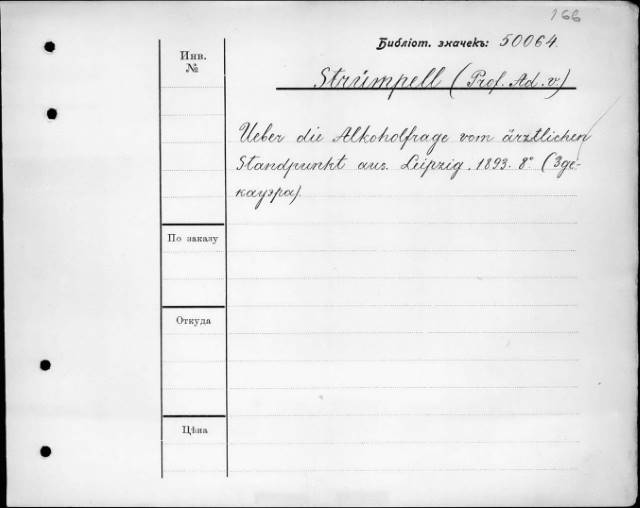 166
Библіот. значекъ: 50064.
Инв.
№
Strümpell (Prof. Ad. v.)
Ueber die Alkoholfrage vom ärztlichen
Standpunkt aus. Leipzig. 1893. 8° (Зде-
кауэра).
По заказу
Откуда
Цѣна